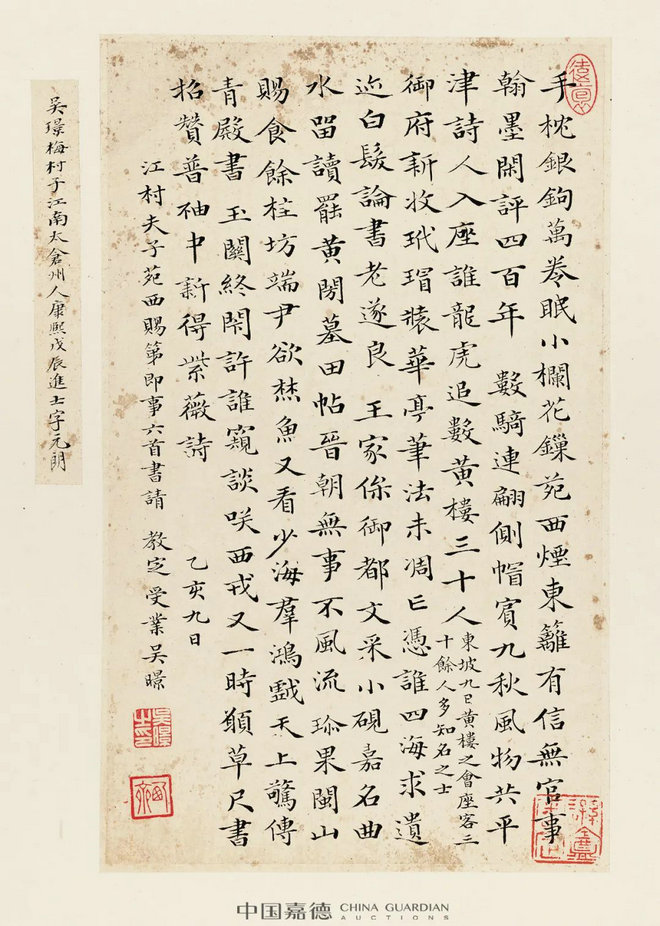 手枕銀鉤萬卷眠小欄花鏁苑西煙東籬有信無官事
翰墨閑評四百年 數騎連翩側帽賓九秋風物共平
津詩人入座誰龍虎追數黃樓三十人
東坡九日黃樓之會座客三
十餘人多知名之士
御府新收玳瑁裝華亭筆法未凋亡憑誰四海求遺
迹白髮論書老遂良 王家保御都文采小硯嘉名曲
水留讀罷黃墓田帖晉朝無事不風流 珎果閩山
賜食餘桂坊端尹欲焚魚又看少海羣鴻戲天上驚傳
青殿書 玉關終閉許誰窺談笑西戎又一時草尺書
招贊普袖中新得紫薇詩
乙亥九日
江村夫子苑西賜第即事六首書請 教定受業吳暻
吳暻之印
吳璟梅村子江南太倉州人康熙戊辰進士字元朗
中国嘉德 CHINA GUARDIAN
AUCTIONS